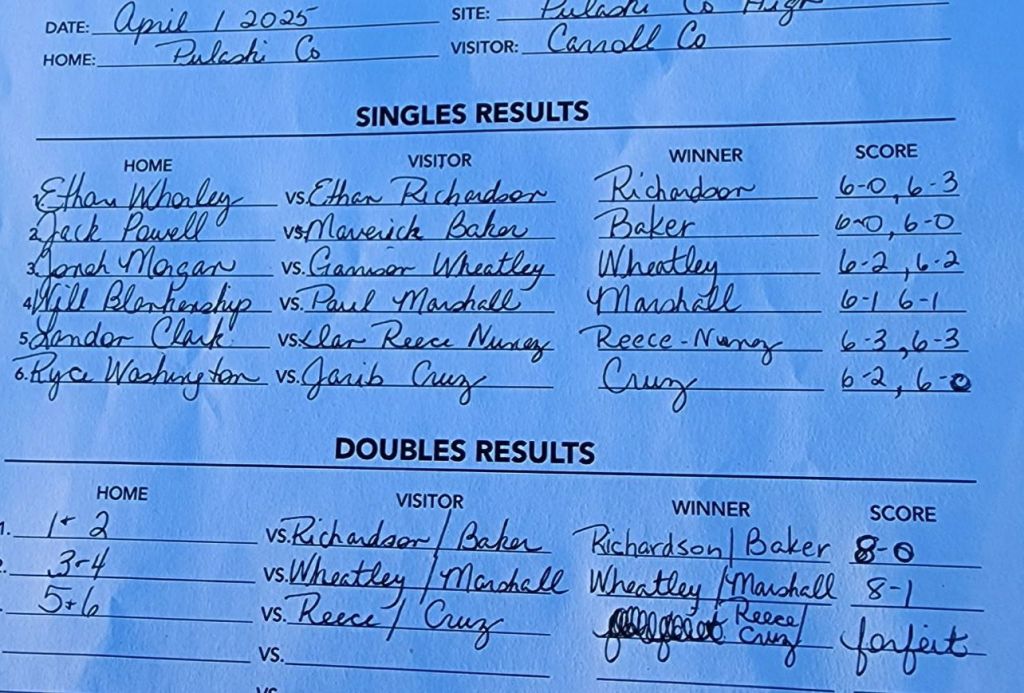 DATE: April 1 2025 SITE: Pulaski Co High
HOME: Pulaski Co VISITOR: Carroll Co
SINGLES RESULTS
HOME VISITOR WINNER SCORE
1. Ethan Whorley vs. Ethan Richardson Richardson 6-0, 6-3
2. Jack Powell vs. Maverick Baker Baker 6-0, 6-0
3. Jonah Morgan vs. Gannon Wheatley Wheatley 6-2, 6-2
4. Will Blankenship vs. Paul Marshall Marshall 6-1 6-1
5. Landon Clark vs. Reece Nunez Reece-Nunez 6-3, 6-3
6. Ryce Washington vs. Jarib Cruz Cruz 6-2, 6-0
DOUBLES RESULTS
HOME VISITOR WINNER SCORE
1. 1+2 vs. Richardson/Baker Richardson/Baker 8-0
3-4 vs. Wheatley/Marshall Wheatley/Marshall 8-1
5+6 vs. Reece/Cruz Reece/Cruz forfeit
vs.
vs